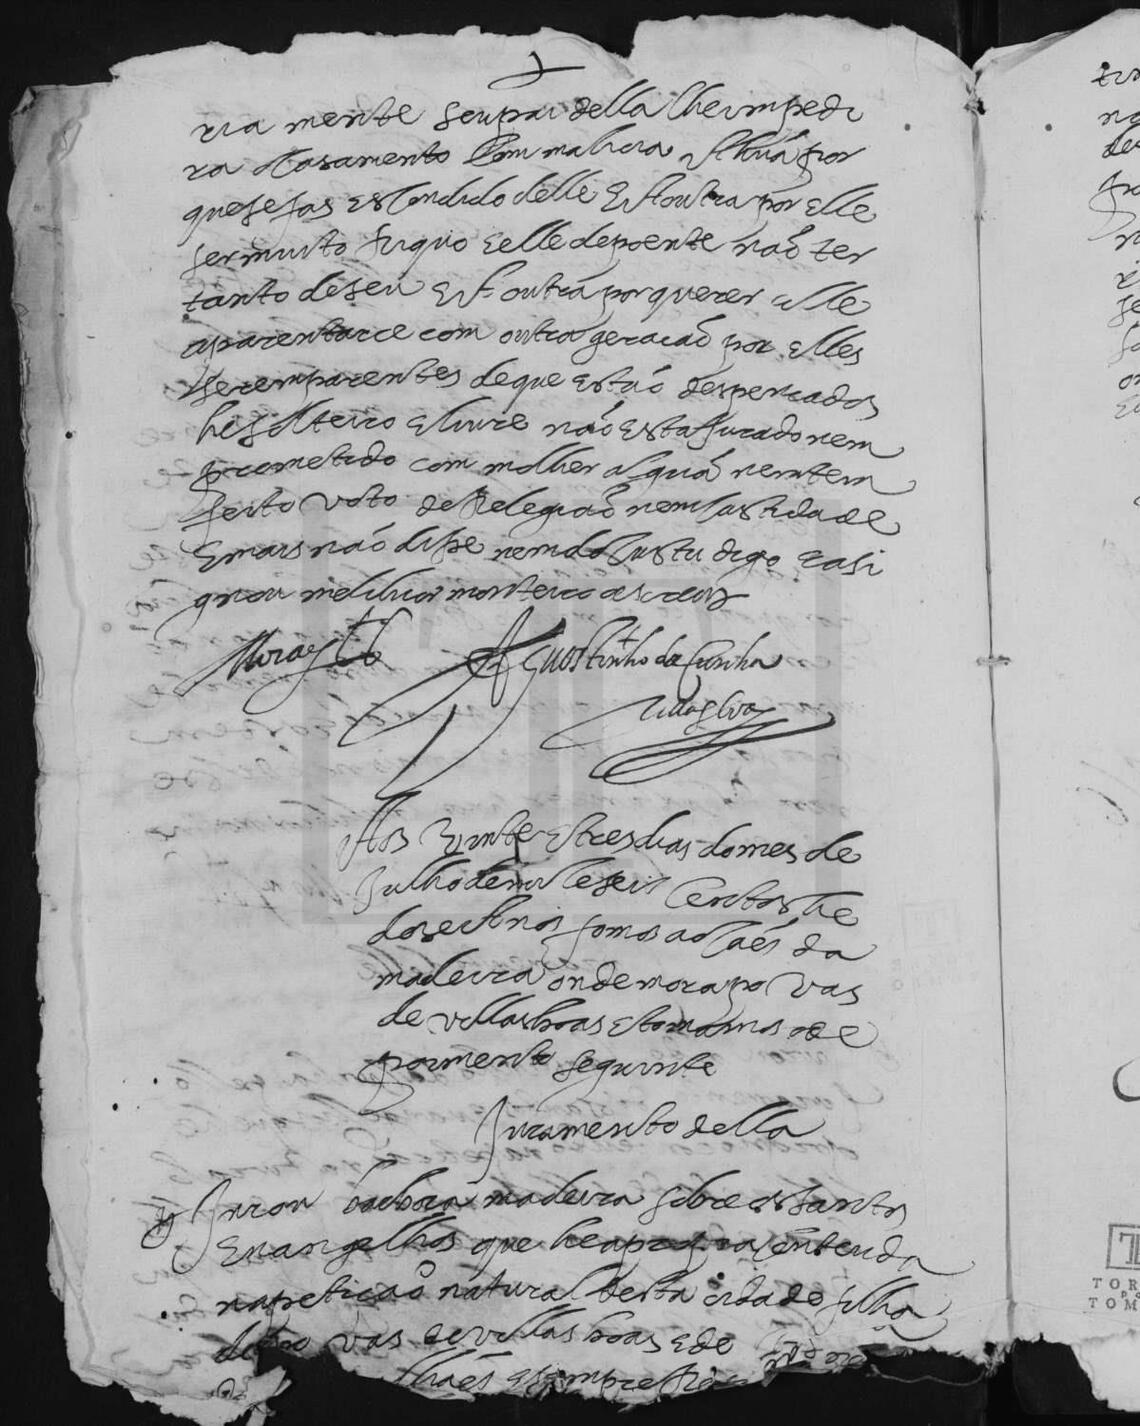 ria mente seu pai della lhe impedi
ra o casamento com malicia e hũa por
que se fas escondido delle e a outra por elle
ser muito riquo e elle depoente não ter
tanto de seu e a outra por querer elle
aparentarce com outra geracaõ por elles
serem parentes de que estaõ despencados
he solteiro e livre não esta jurado nem
prometido com molher alguã nem tem
feito voto de Relegiaõ nem castidade
E mais naõ disse nem do custu digo e asi
gnou melchior monteiro o escrevy
Agostinho da Cunha
Villasboas
Aos Vinte e tres dias do mes de
Julho de mil e seis Centos he
doze annos fomos ao Caés da
madeira onde mora po vas
de villasboas e tomamos o de
poimento seguinte
Juramento della
Jurou barbora madeira sobre os santos
Evangelhos que he a propria contenda
na peticaõ natural desta cidade filha
de po vas de villasboas e de